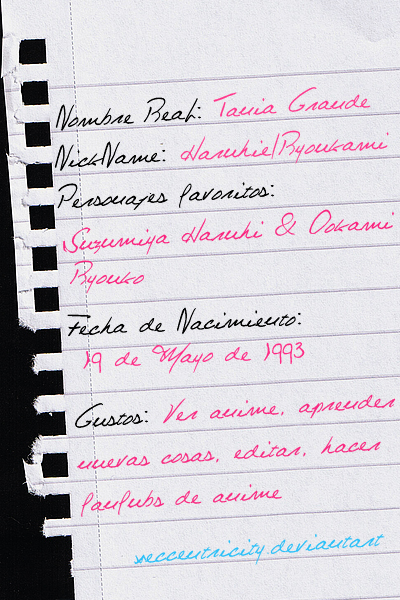 Nombre Real: Tania Grande
NickName: Haruhie/Ryoukami
Personajes favoritos:
Suzumiya Haruhi & Ookami
Ryouko
Fecha de Nacimiento:
19 de Mayo de 1993
Gustos: Ver anime, aprender
nuevas cosas, editar, hacer
fanfubs de anime
xeccentricity.deviantart